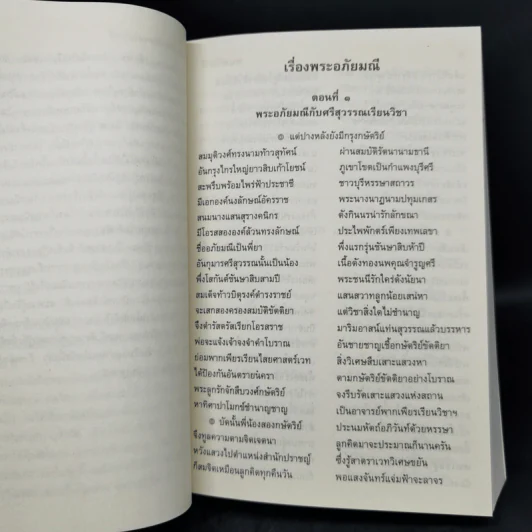 เรื่องพระอภัยมณี
ตอนที่ ๑
พระอภัยมณีกับศรีสุวรรณเรียนวิชา
๏ แต่ปางหลังยังมีกรุงกษัตริย์
สมมุติวงศ์ทรงนามท้าวสุทัศน์ ผ่านสมบัติรัตนานามธานี
อันกรุงไกรใหญ่ยาวสิบเก้าโยชน์ ภูเขาโขดเป็นกำแพงบุรีศรี
สะพรึบพร้อมไพร่ฟ้าประชาชี ชาวบุรีหรรษาสถาวร
มีเอกองค์นงลักษณ์อัครราช พระนางนาฏนามปทุมเกสร
สนมนางแสนสุรางคนิกร ดังกินนรน่ารักลักขณา
มีโอรสสององค์ล้วนทรงลักษณ์ ประไพพักตร์เพียงเทพเลขา
ชื่ออภัยมณีเป็นพี่ยา พึ่งแรกรุ่นชันษาสิบห้าปี
อันกุมารศรีสุวรรณนั้นเป็นน้อง เนื้อดังทองนพคุณจำรูญศรี
พึ่งโสกันต์ชันษาสิบสามปี พระชนนีรักใคร่ดังนัยนา
สมเด็จท้าวบิตุรงค์ดำรงราชย์ แสนสวาทลูกน้อยเสน่หา
จะเสกสองครองสมบัติขัตติยา แต่วิชาสิ่งใดไม่ชำนาญ
จึงดำรัสตรัสเรียกโอรสราช มาริมอาสน์แท่นสุวรรณแล้วบรรหาร
พ่อจะแจ้งเจ้าจงจำคำโบราณ อันชายชาญเชื้อกษัตริย์ขัตติยา
ย่อมพากเพียรเรียนไสยศาสตร์เวท สิ่งวิเศษสืบเสาะแสวงหา
ได้ป้องกันอันตรายนครา ตามกษัตริย์ขัตติยาอย่างโบราณ
พระลูกรักจักสืบวงศ์กษัตริย์ จงรีบรัดเสาะแสวงแห่งสถาน
หาทิศาปาโมกข์ชำนาญชาญ เป็นอาจารย์พากเพียรเรียนวิชาฯ
๏ บัดนั้นพี่น้องสองกษัตริย์ ประนมหัตถ์อภิวันท์ด้วยหรรษา
จึงทูลความตามจิตเจตนา ลูกคิดมาจะประมาณก็นานครัน
หวังแสวงไปตำแหน่งสำนักปราชญ์ ซึ่งรู้สาตราเวทวิเศษขยัน
ก็สมจิตเหมือนลูกคิดทุกคืนวัน พอแสงจันทร์แจ่มฟ้าจะลาจร